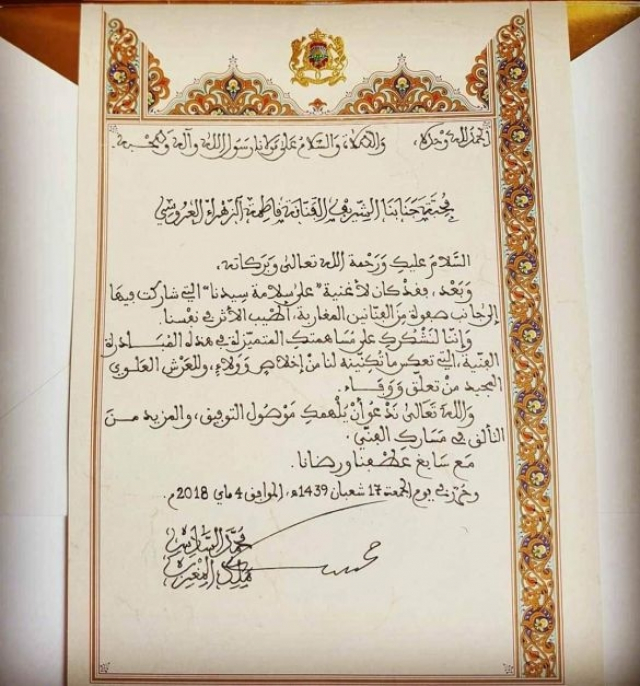 الحمد لله وحده، والصلاة والسلام على مولانا رسول الله وآله وصحبه.
محبة جنابنا الشريف الفنانة فاطمة الزهراء العروسي
السلام عليك ورحمة الله تعالى وبركاته،
وبعد، فقد كان لأغنية "على سلامة سيدنا" التي شاركت فيها
إلى جانب صفوة من الفنانين المغاربة، أطيب الأثر في نفسنا.
وإننا لنشكرك على مساهمتك المتميزة في هذه المبادرة
الفنية، التي تعكس ما تكنينه لنا من إخلاص وولاء، وللعرش العلوي
المجيد من تعلق ووفاء.
والله تعالى ندعو أن يلهمك موصول التوفيق، والمزيد من
التألق في مسارك الفني.
مع سابغ عطفنا ورضانا.
وحرر في يوم الجمعة 17 شعبان 1439هـ، الموافق 4 ماي 2018م.
محمد السادس
ملك المغرب